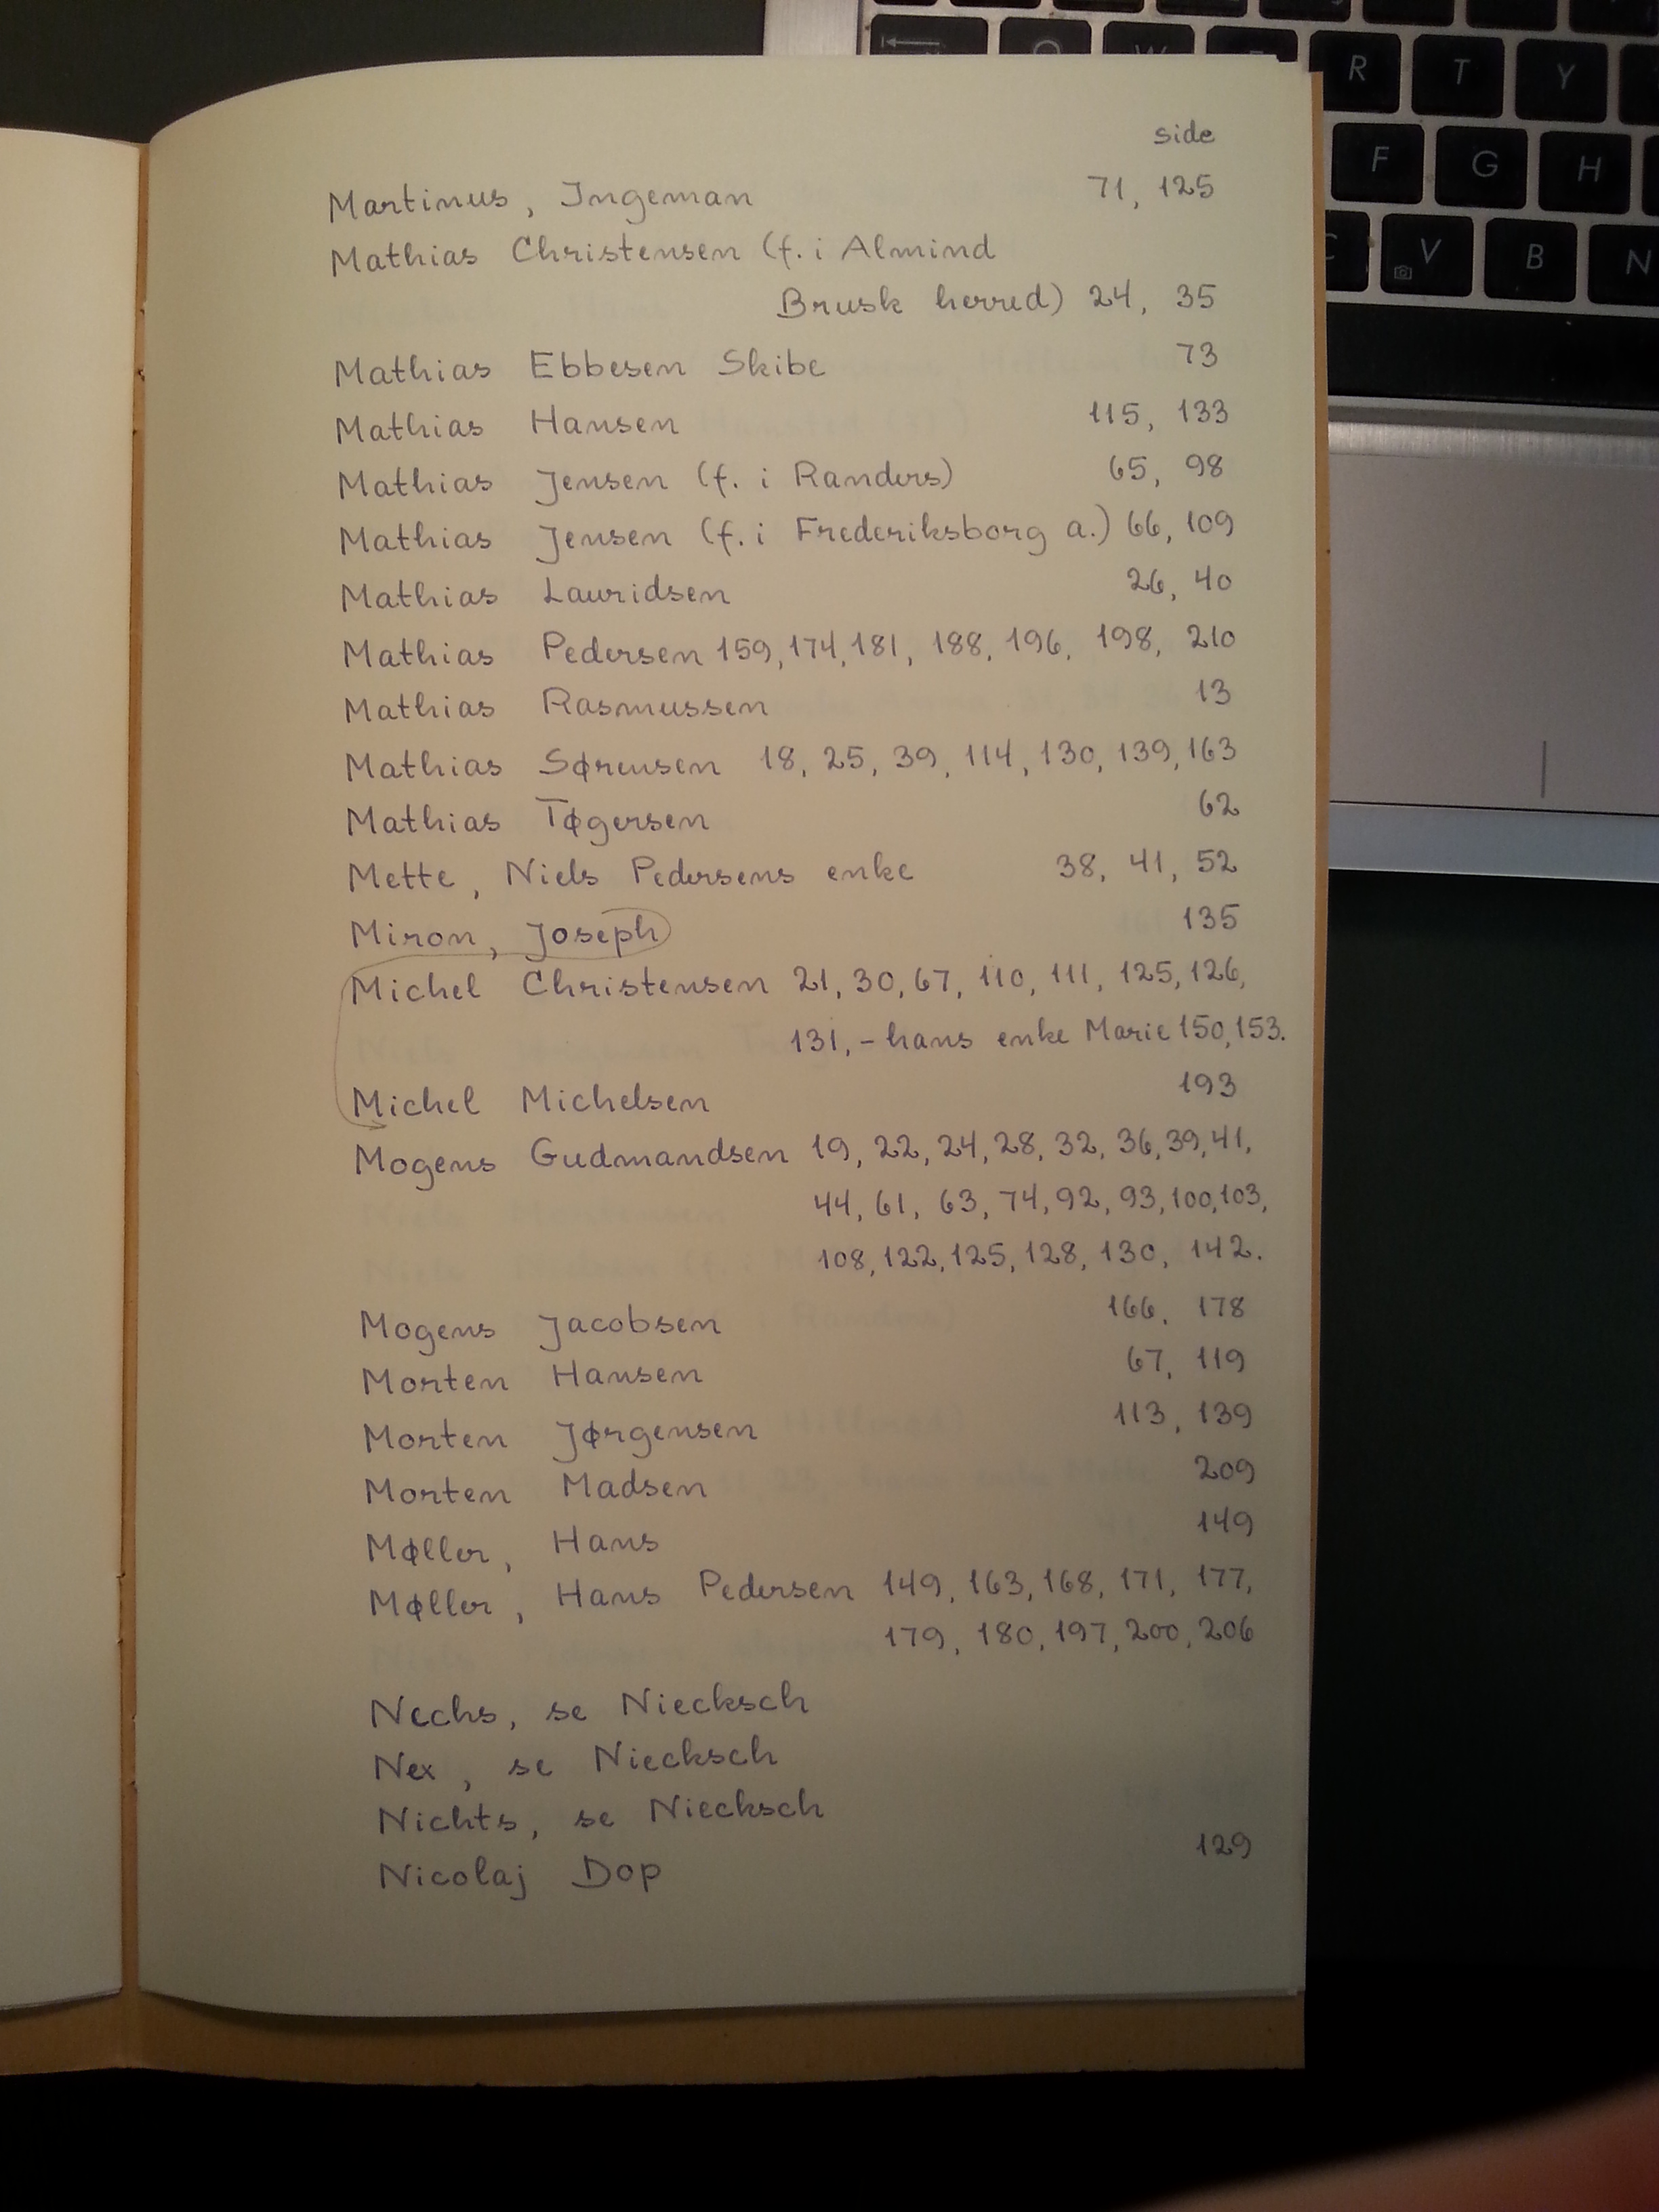 side
Martinus, Ingeman 71, 125
Mathias Christensen (f. i Almind
Brusk herred) 24, 35
Mathias Ebbesen Skibe 73
Mathias Hansen 115, 133
Mathias Jensen (f. i Randers) 65, 98
Mathias Jensen (f. i Frederiksborg a.) 66, 109
Mathias Lauridsen 26, 40
Mathias Pedersen 159, 174, 181, 188, 196, 198, 210
Mathias Rasmussen 13
Mathias Sørensen 18, 25, 39, 114, 130, 139, 163
Mathias Tøgersen 62
Mette, Niels Pedersens enke 38, 41, 52
Miron, Joseph 135
Michel Christensen 21, 30, 67, 110, 111, 125, 126,
131, - hans enke Marie 150, 153.
Michel Michelsen 193
Mogens Gudmandsen 19, 22, 24, 28, 32, 36, 39, 41,
44, 61, 63, 74, 92, 93, 100, 103,
108, 122, 125, 128, 130, 142.
Mogens Jacobsen 166, 178
Morten Hansen 67, 119
Morten Jørgensen 113, 139
Morten Madsen 209
Møller, Hans 149
Møller, Hans Pedersen 149, 163, 168, 171, 177,
179, 180, 197, 200, 206
Nechs, se Niecksch
Nex, se Niecksch
Nichts, se Niecksch
Nicolaj Dop 129
R T Y
F G H
C V B N